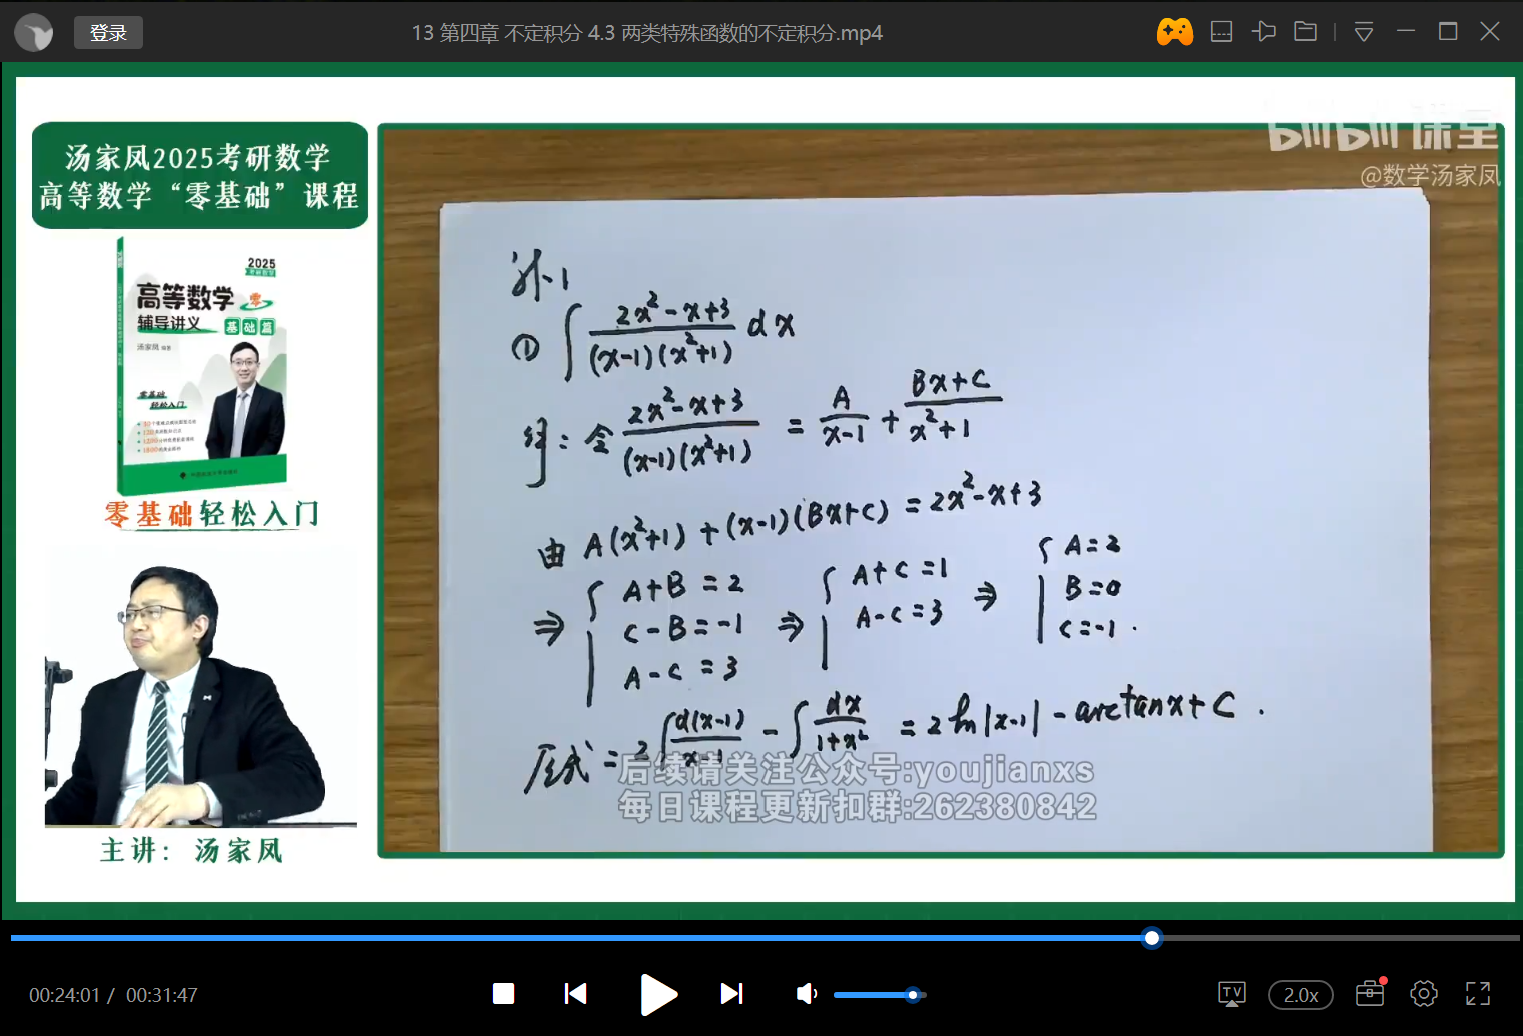 登录
13 第四章 不定积分 4.3 两类特殊函数的不定积分.mp4
汤家凤2025考研数学
高等数学“零基础”课程
2025
高等数学 零
辅导讲义 基础篇
汤家凤 编著
零基础
轻松入门
零基础轻松入门
主讲：汤家凤
bilibili 课堂
@数学汤家凤
补1
① ∫ (2x²-x+3)/((x-1)(x²+1)) dx
解：令 (2x²-x+3)/((x-1)(x²+1)) = A/(x-1) + (Bx+C)/(x²+1)
由 A(x²+1)+(x-1)(Bx+C)=2x²-x+3
⇒ { A+B=2, C-B=-1, A-C=3 ⇒ { A+C=1, A-C=3 ⇒ { A=2, B=0, C=-1.
原式=2∫d(x-1)/(x-1) - ∫dx/(1+x²) = 2ln|x-1| - arctanx+C.
后续请关注公众号:youjianxs
每日课程更新扣群:262380842
00:24:01 / 00:31:47
TV
2.0x